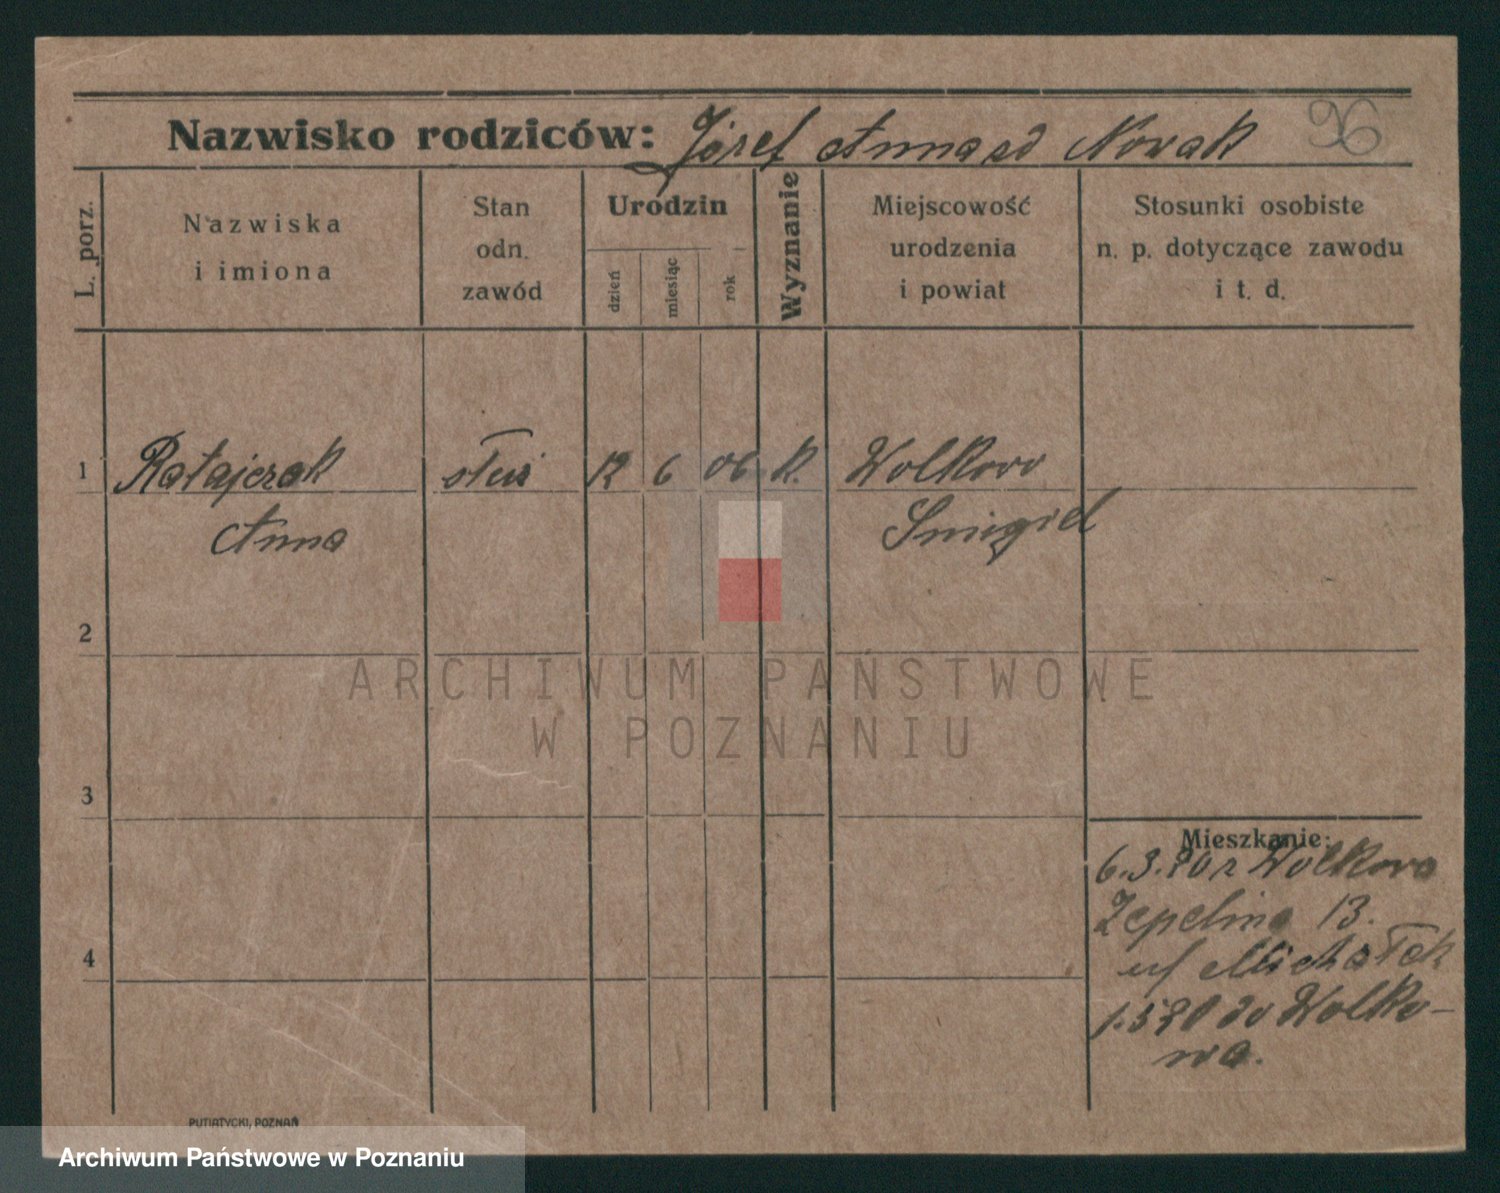 Nazwisko rodziców: Józef Anna zd Nowak 96
L. porz.
Nazwiska
i imiona
Stan
odn.
zawód
Urodzin
dzień
miesiąc
rok
Wyznanie
Miejscowość
urodzenia
i powiat
Stosunki osobiste
n. p. dotyczące zawodu
i t. d.
1 Ratajczak służ 12 6 06 k. Wolkowo
Anna Śmigiel
2
ARCHIWUM PAŃSTWOWE
W POZNANIU
3
Mieszkanie:
6.3. z Wolkowo
Zepelina 13.
Michałek
do Wolko-
wa.
4
PUTIATYCKI, POZNAŃ
Archiwum Państwowe w Poznaniu